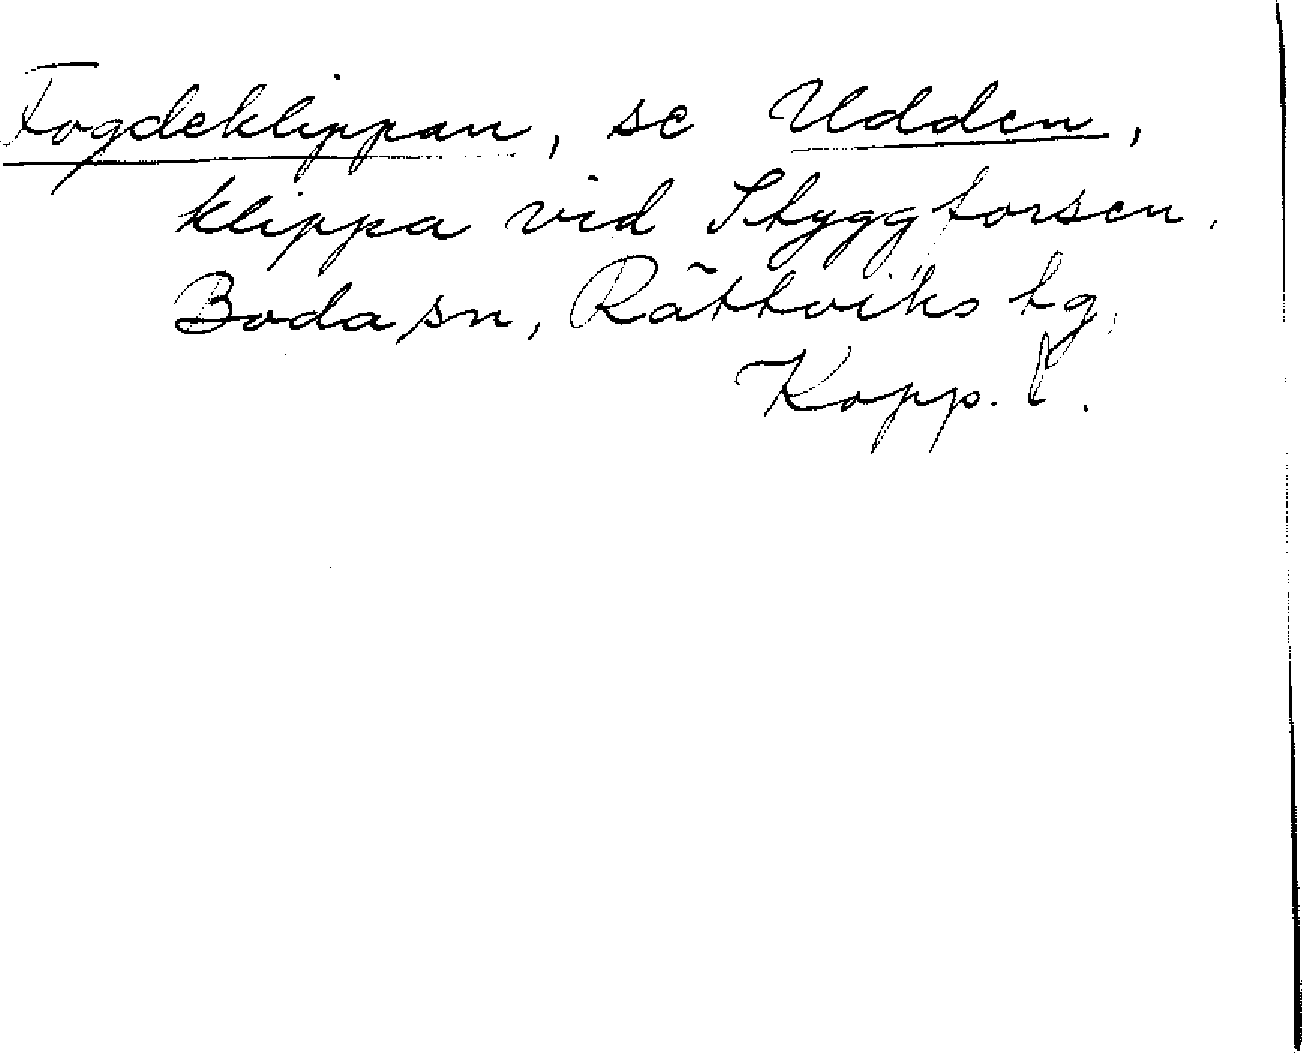 Fogdeklippan, se Udden,
klippa vid Styggforsen,
Boda sn, Rättviks tg,
Kopp. l.